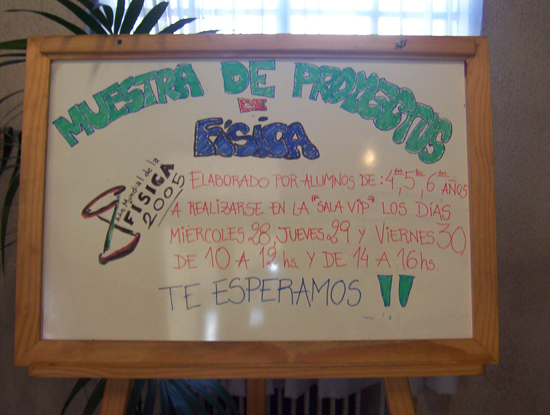 MUESTRA DE PROYECTOS
DE
FíSiCA
Año Mundial de la
FÍSICA
2005
ELABORADO POR ALUMNOS DE: 4, 5, 6 AÑOS
A REALIZARSE EN LA "SALA VIP" LOS DÍAS
MIERCOLES 28, JUEVES 29 Y VIERNES 30
DE 10 A 12 hs Y DE 14 A 16 hs.
TE ESPERAMOS !!